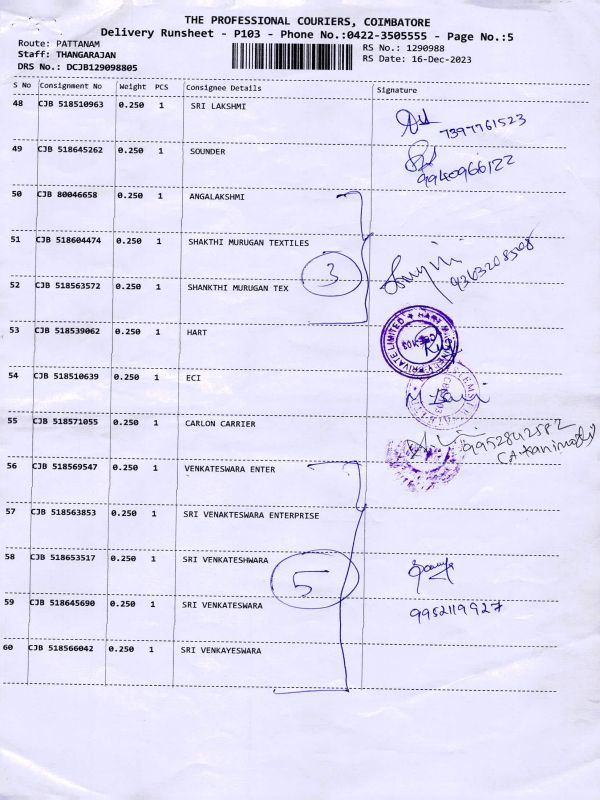 THE PROFESSIONAL COURIERS, COIMBATORE
Delivery Runsheet - P103 - Phone No.:0422-3505555 - Page No.:5
Route: PATTANAM
RS No.: 1290988
Staff: THANGARAJAN
RS Date: 16-Dec-2023
DRS No.: DCJB129098805
S No Consignment No Weight PCS Consignee Details Signature
48 CJB 518510963 0.250 1 SRI LAKSHMI
7397761523
49 CJB 518645262 0.250 1 SOUNDER
9940966122
50 CJB 80046658 0.250 1 ANGALAKSHMI
51 CJB 518604474 0.250 1 SHAKTHI MURUGAN TEXTILES
3
52 CJB 518563572 0.250 1 SHANKTHI MURUGAN TEX
53 CJB 518539062 0.250 1 HART
54 CJB 518510639 0.250 1 ECI
55 CJB 518571055 0.250 1 CARLON CARRIER
56 CJB 518569547 0.250 1 VENKATESWARA ENTER
57 CJB 518563853 0.250 1 SRI VENAKTESWARA ENTERPRISE
58 CJB 518653517 0.250 1 SRI VENKATESHWARA
5
59 CJB 518645690 0.250 1 SRI VENKATESWARA
9952119927
60 CJB 518566042 0.250 1 SRI VENKAYESWARA